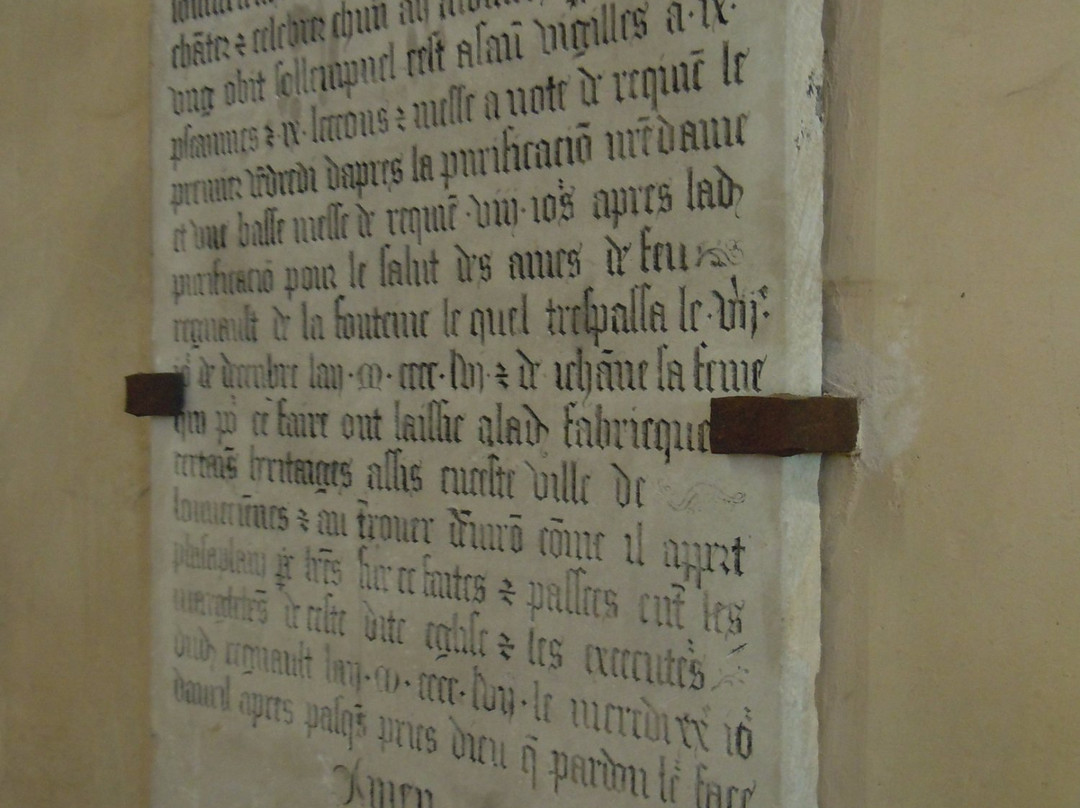 chãter ⁊ celebrer chũn an
vng obit sollempnel cest asau̅ vigilles a · ix ·
pseaumes ⁊ · ix · lecons ⁊ messe a note de requiẽ le
premier vẽdredi dapres la purificaciõ nr̃e dame
et vne basse messe de requiẽ · viij · iors apres lad
purificaciõ pour le salut des ames de feu
regnault de la fonteine le quel trespassa le · viij ·
io de decembre lan · m · cccc · lvj · ⁊ de iehãne sa feme
qui po ce faire ont laissie alad fabricque
certais heritaiges assis enceste ville de
⁊ au t̃rouer dẽuirõ cõme il appert
lr̃es sur ce faites ⁊ passees ent̃ les
de ceste dite eglise ⁊ les executes
dud regnault lan · m · cccc · lvij · le mercredi xx io
dauril apres pasqs pries dieu q̃ pardon le face
Amen